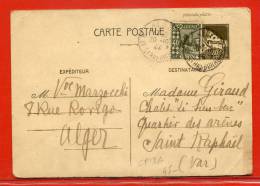 CARTE POSTALE
EXPÉDITEUR
DESTINATAIRE
M Vve Marzocchi
8 Rue Rovigo
Alger
Madame Giraud
Chalet "Li
Quartier des arènes
Saint Raphaël
(Var)